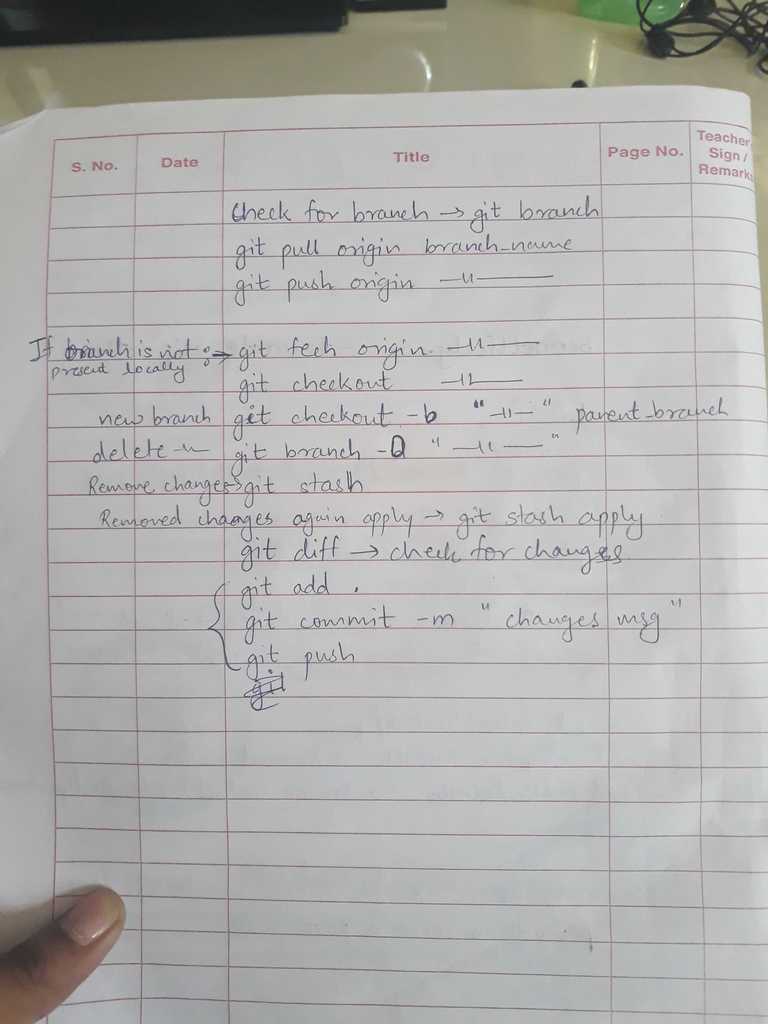 S. No. Date Title Page No. Teacher Sign / Remark
Check for branch → git branch
git pull origin branch_name
git push origin —11—
If branch is not :→ git fech origin —11—
present locally
git checkout —11—
new branch git checkout -b "—11—" parent_branch
delete —11— git branch -D "—11—"
Remove changes → git stash
Removed changes again apply → git stash apply
git diff → check for changes
git add .
git commit -m "changes msg"
git push